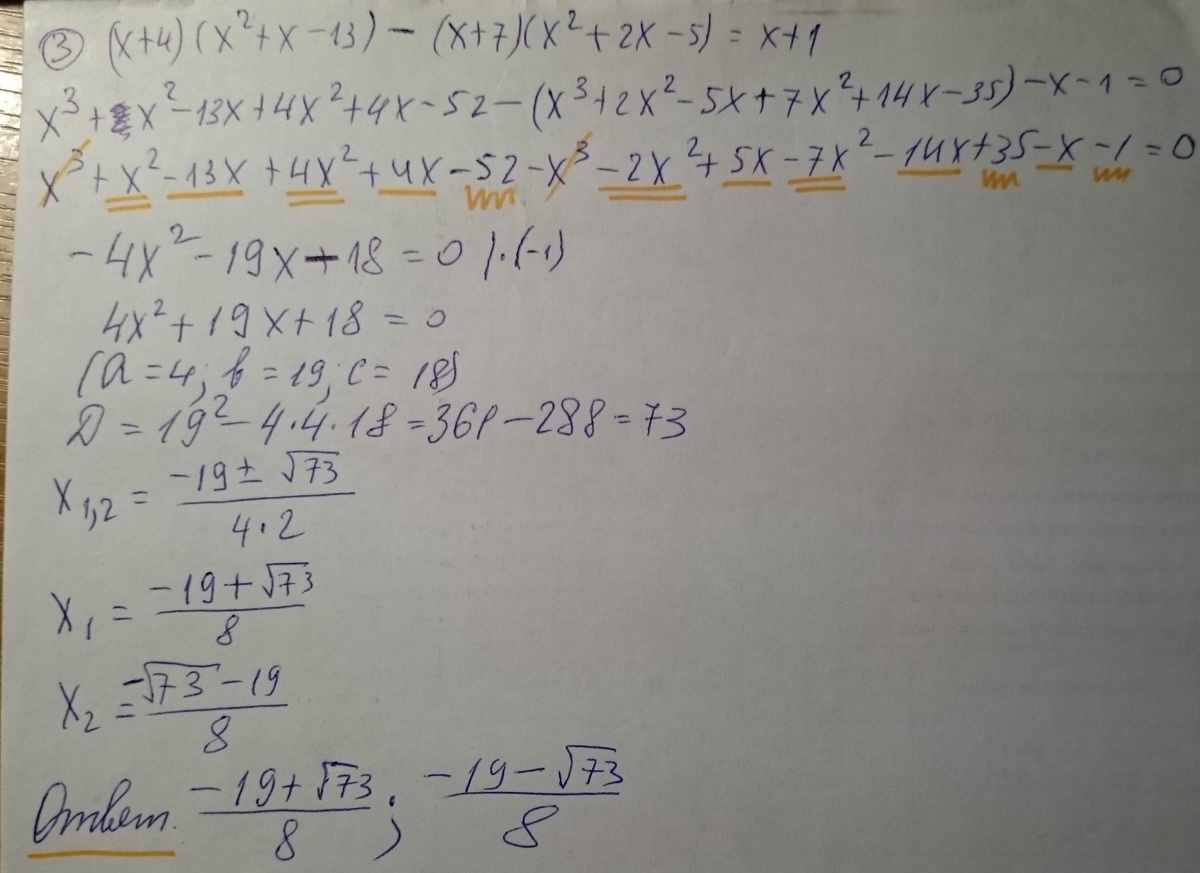 ③ (x+4)(x²+x-13) - (x+7)(x²+2x-5) = x+1
x³+x²-13x+4x²+4x-52-(x³+2x²-5x+7x²+14x-35)-x-1=0
x³+x²-13x+4x²+4x-52-x³-2x²+5x-7x²-14x+35-x-1=0
-4x²-19x-18=0 |·(-1)
4x²+19x+18=0
(a=4; b=19; c=18)
D=19²-4·4·18=361-288=73
x₁,₂ = (-19±√73)/(4·2)
x₁ = (-19+√73)/8
x₂ = (-√73-19)/8
Ответ. (-19+√73)/8; (-19-√73)/8